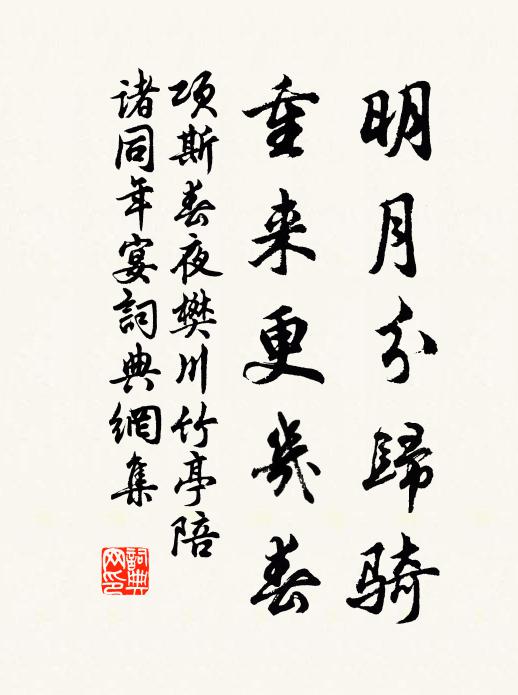 明月分歸騎
重来更幾春
項斯春夜樊川竹亭陪
诸同年宴詞典網集
詞典网印